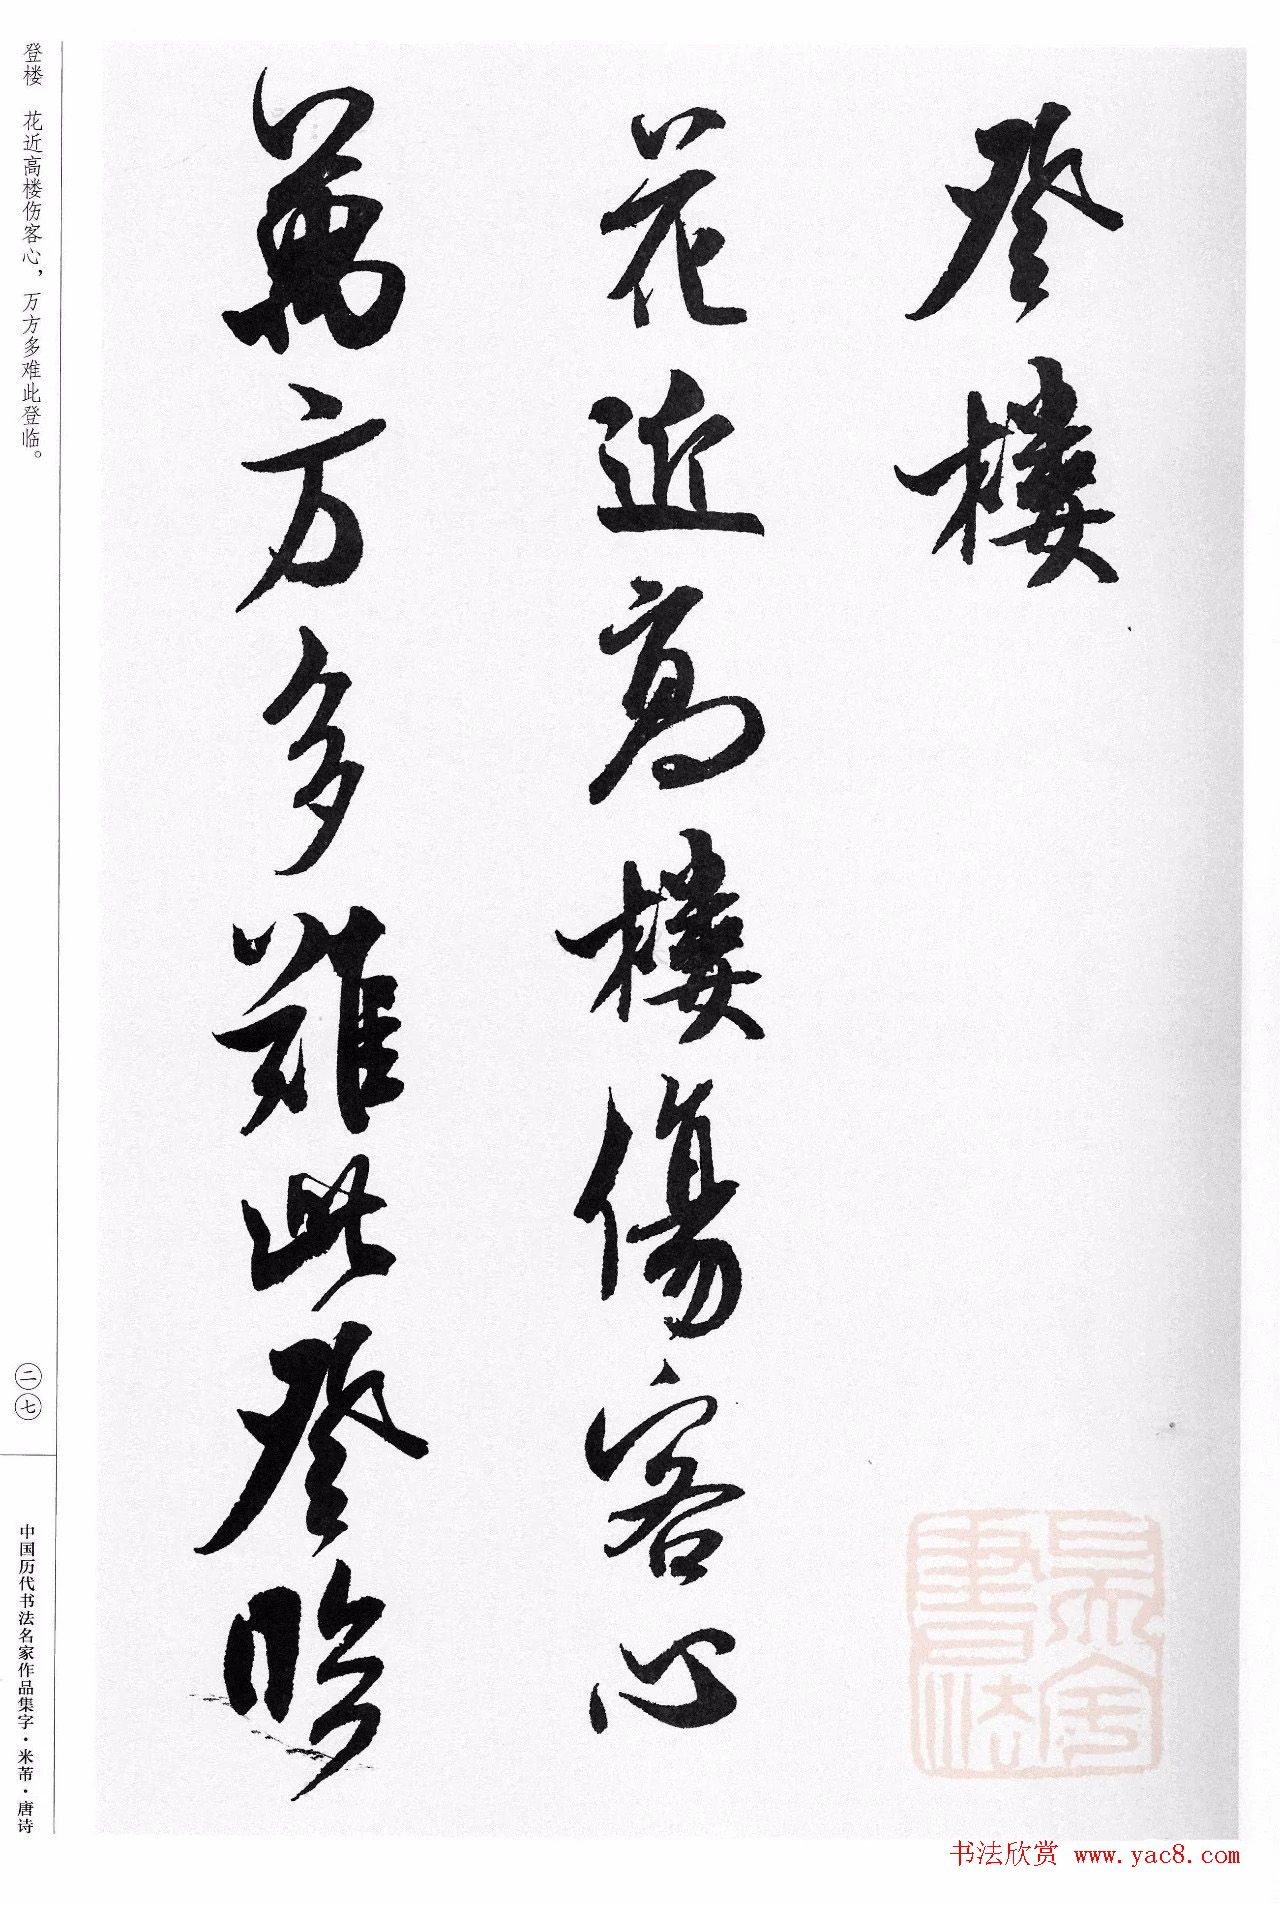 登樓
花近高樓傷客心
萬方多難此登臨
登楼 花近高楼伤客心，万方多难此登临。
二七
中国历代书法名家作品集字·米芾·唐诗
书法欣赏 www.yac8.com